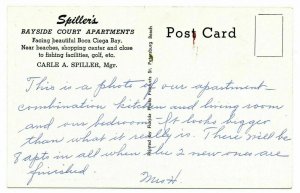 Spiller's
BAYSIDE COURT APARTMENTS
Facing beautiful Boca Ciega Bay.
Near beaches, shopping center and close
to fishing facilities, golf, etc.
CARLE A. SPILLER, Mgr.
Post Card
St. Petersburg Beach
This is a photo of our apartment-
combination kitchen and living room
and our bedroom - It looks bigger
than what it really is. There will be
8 apts in all when the 2 new ones are
finished.